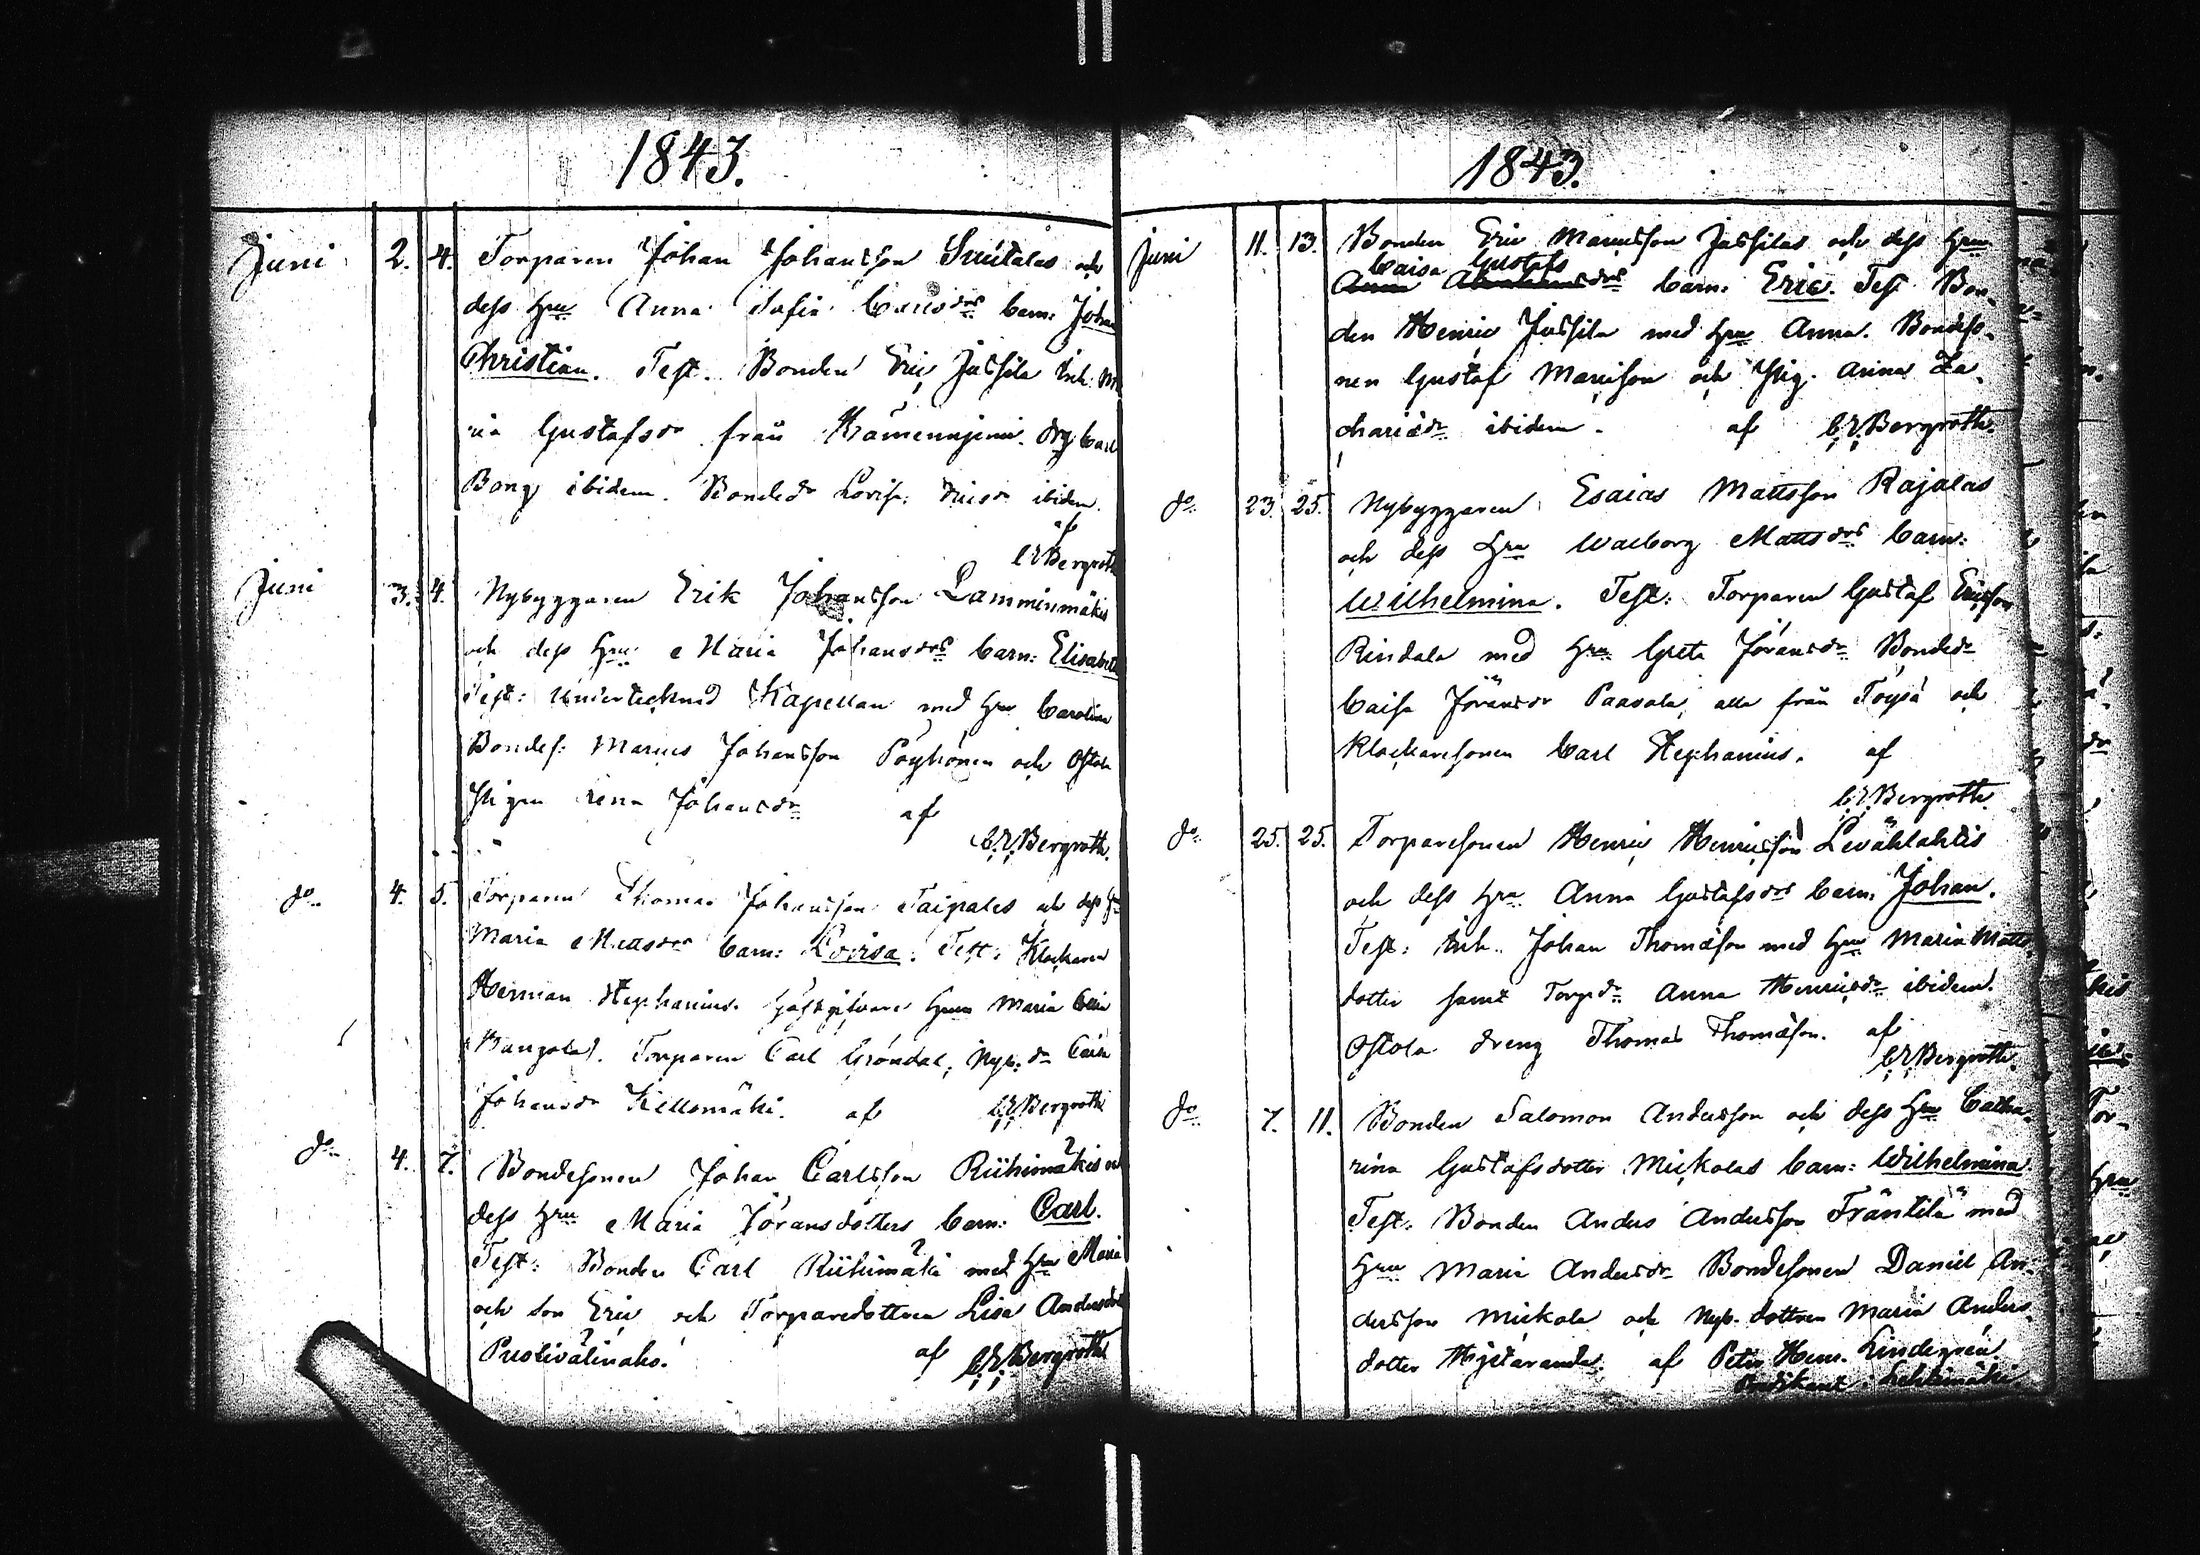 1843.
Juni 2. 4. Torparen Johan Johansson Smitalas och
dess Hru Anna Sofia Carlsdrs barn: Johan
Christian. Test. Bonden Eric Jussila Enk. Ma
ria Gustafsdr från Hämeenniemi. Drg Carl
Bong ibidem. Bondedr Lovisa Ericsdr ibidem.
af
C.E. Bergroth
Juni 3. 4. Nybyggaren Erik Johansson Lamminmäkis
och dess Hru Maria Johansdrs barn: Elisabeth
Test: Undertecknad Kapellan med Hru Carolina
Bondes: Marius Johansson Pöyhönen och Ostola
Pigan Lena Johansdr af
C.E. Bergroth.
do 4. 5. Torparen Thomas Johansson Taipales och dess Hru
Maria Mattsdrs barn: Lovisa. Test: Klockaren
Herman Stephanius. Gästgifvare Hrun Maria
Torparen Carl Gröndal, Nyb. dr Caisa
Johansdr Kellomäki. af C.E. Bergroth
do 4. 7. Bondesonen Johan Carlsson Riihimäkis och
dess Hru Maria Jöransdotters barn: Carl.
Test: Bonden Carl Riihimäki med Hru Maria
och son Eric och Torparedottren Lisa Andersdotter
Pustivälinaho. af C.E. Bergroth
1843.
Juni 11. 13. Bonden Eric Mariusson Jussilas och dess Hru
Caisa Gustafs
Anna Abrahamsdrs barn: Eric. Test Bon-
den Henric Jussila med Hru Anna. Bondeso-
nen Gustaf Marisson och Pig. Anna Za-
chariædr ibidem. af C.E. Bergroth.
do 23. 25. Nybyggaren Esaias Mattsson Rajalas
och dess Hru Walborg Mattsdrs barn:
Wilhelmina. Test: Torparen Gustaf Ericsson
Rindala med Hru Greta Jöransdr Bondedr
Caisa Jöransdr Paavola, alla från Töysä och
Klockaresonen Carl Stephanius. af
C.E. Bergroth.
do 25. 25. Torparesonen Henric Henricsson Levählahtis
och dess Hru Anna Gustafsdrs barn: Johan.
Test: Enk. Johan Thomæson med Hru Maria Matts-
dotter samt Torpdr Anna Henricsdr ibidem.
Ostola dreng Thomas Thomæson. af
C.E. Bergroth.
do 7. 11. Bonden Salomon Andersson och dess Hru Catha-
rina Gustafsdotter Mickolas barn: Wilhelmina.
Test. Bonden Anders Andersson Fräntilä med
Hru Maria Andersdr Bondesonen Daniel An-
dersson Mickola och Nyb. dottren Maria Anders-
dotter Hjetaranda. af Petter Henr. Lindegrén
Predikant i Lehtimäki.